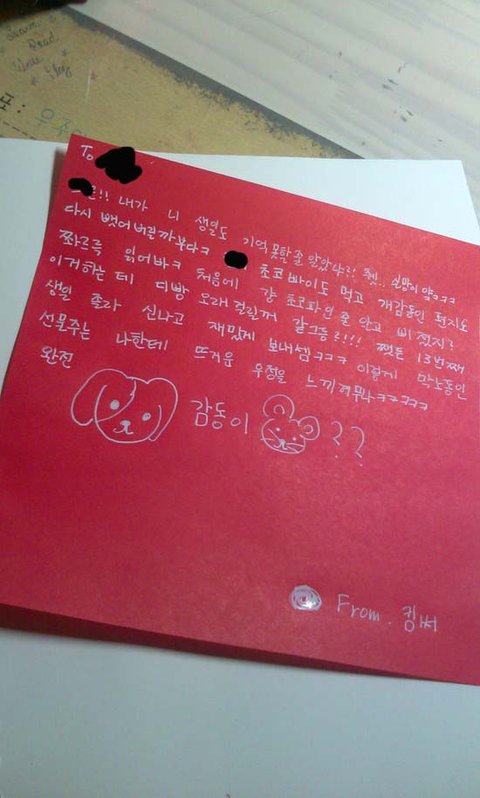 Dream
Read
포: 우주
To
!! 내가 니 생일도 기억 못할 줄 알았냐?! 쳇.. 실망이얔ㅋㅋ
다시 뺏어버릴까부다ㅋ 초코빠이도 먹고 개감동인 편지도
쫘르륵 읽어바ㅋ 처음에 걍 초코파인 줄 알고 삐졌지?
이거하는 데 디빵 오래걸린꺼 같그등?!!! 쨋튼 13번째
생일 졸라 신나고 재밌게 보내셈ㅋㅋㅋ 이렇게 막노동인
선물주는 나한테 뜨거운 우정을 느끼꺼무나ㅋㅋㅋㅋㅋ
완전 감동이 ??
From. 킴써